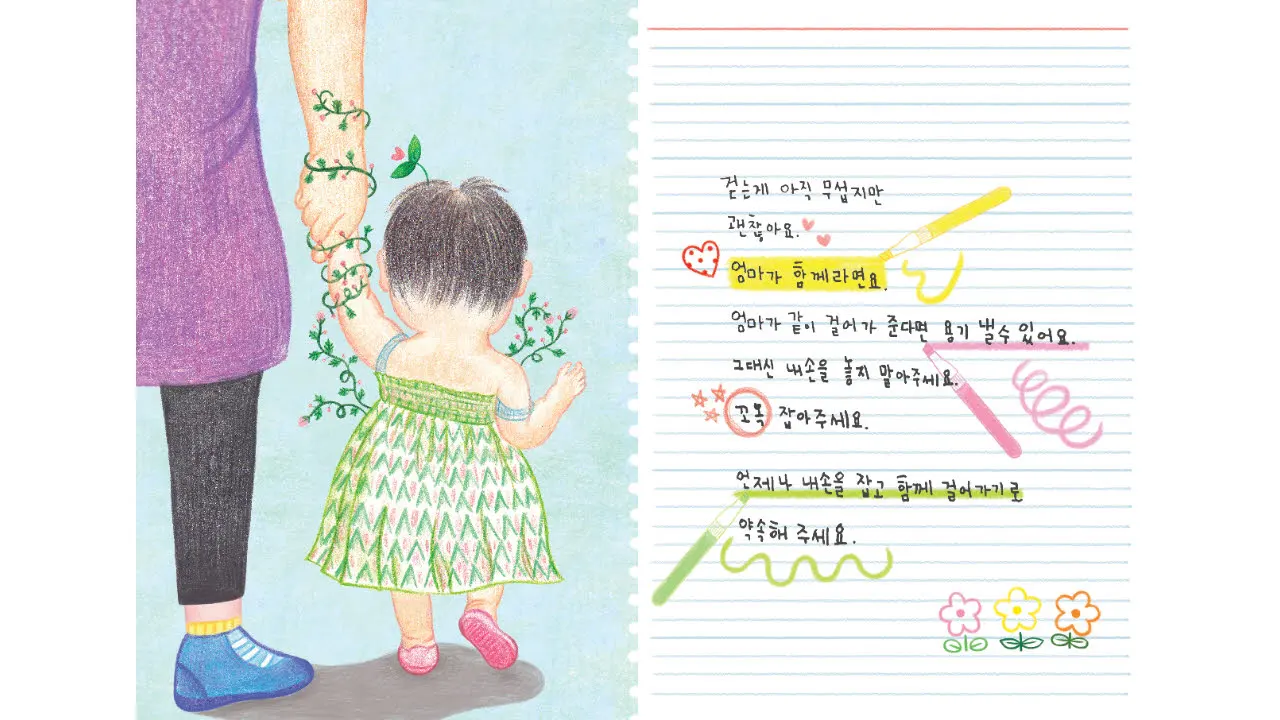 걷는게 아직 무섭지만
괜찮아요.
엄마가 함께라면요.
엄마가 같이 걸어가 준다면 용기 낼수 있어요.
그대신 내손을 놓지 말아주세요.
꼬옥 잡아주세요.
언제나 내손을 잡고 함께 걸어가기로
약속해 주세요.